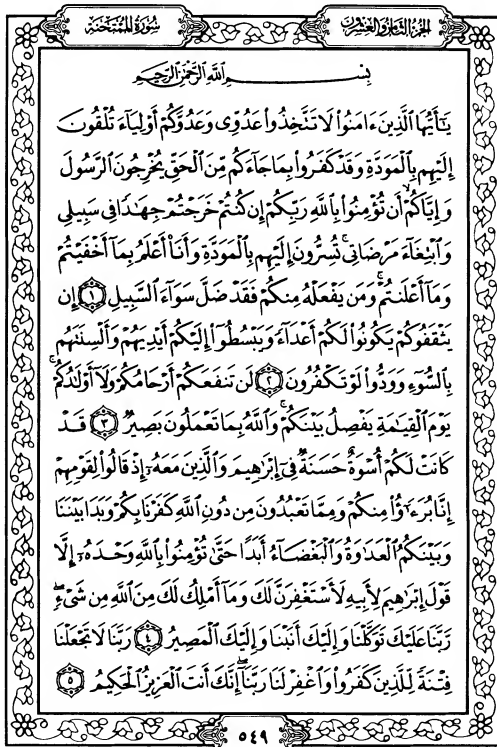 سُورَةُ المُمْتَحنَةِ
الجُزْءُ الثَّامِنُ وَالعِشْرُونَ
بِسْمِ اللَّهِ الرَّحْمَٰنِ الرَّحِيمِ
يَٰٓأَيُّهَا ٱلَّذِينَ ءَامَنُوا۟ لَا تَتَّخِذُوا۟ عَدُوِّى وَعَدُوَّكُمْ أَوْلِيَآءَ تُلْقُونَ
إِلَيْهِم بِٱلْمَوَدَّةِ وَقَدْ كَفَرُوا۟ بِمَا جَآءَكُم مِّنَ ٱلْحَقِّ يُخْرِجُونَ ٱلرَّسُولَ
وَإِيَّاكُمْ ۙ أَن تُؤْمِنُوا۟ بِٱللَّهِ رَبِّكُمْ إِن كُنتُمْ خَرَجْتُمْ جِهَٰدًا فِى سَبِيلِى
وَٱبْتِغَآءَ مَرْضَاتِى ۚ تُسِرُّونَ إِلَيْهِم بِٱلْمَوَدَّةِ وَأَنَا۠ أَعْلَمُ بِمَآ أَخْفَيْتُمْ
وَمَآ أَعْلَنتُمْ ۚ وَمَن يَفْعَلْهُ مِنكُمْ فَقَدْ ضَلَّ سَوَآءَ ٱلسَّبِيلِ ١ إِن
يَثْقَفُوكُمْ يَكُونُوا۟ لَكُمْ أَعْدَآءً وَيَبْسُطُوٓا۟ إِلَيْكُمْ أَيْدِيَهُمْ وَأَلْسِنَتَهُم
بِٱلسُّوٓءِ وَوَدُّوا۟ لَوْ تَكْفُرُونَ ٢ لَن تَنفَعَكُمْ أَرْحَامُكُمْ وَلَآ أَوْلَٰدُكُمْ ۚ
يَوْمَ ٱلْقِيَٰمَةِ يَفْصِلُ بَيْنَكُمْ ۚ وَٱللَّهُ بِمَا تَعْمَلُونَ بَصِيرٌ ٣ قَدْ
كَانَتْ لَكُمْ أُسْوَةٌ حَسَنَةٌ فِىٓ إِبْرَٰهِيمَ وَٱلَّذِينَ مَعَهُۥٓ إِذْ قَالُوا۟ لِقَوْمِهِمْ
إِنَّا بُرَءَٰٓؤُا۟ مِنكُمْ وَمِمَّا تَعْبُدُونَ مِن دُونِ ٱللَّهِ كَفَرْنَا بِكُمْ وَبَدَا بَيْنَنَا
وَبَيْنَكُمُ ٱلْعَدَٰوَةُ وَٱلْبَغْضَآءُ أَبَدًا حَتَّىٰ تُؤْمِنُوا۟ بِٱللَّهِ وَحْدَهُۥٓ إِلَّا
قَوْلَ إِبْرَٰهِيمَ لِأَبِيهِ لَأَسْتَغْفِرَنَّ لَكَ وَمَآ أَمْلِكُ لَكَ مِنَ ٱللَّهِ مِن شَىْءٍ ۖ
رَّبَّنَا عَلَيْكَ تَوَكَّلْنَا وَإِلَيْكَ أَنَبْنَا وَإِلَيْكَ ٱلْمَصِيرُ ٤ رَبَّنَا لَا تَجْعَلْنَا
فِتْنَةً لِّلَّذِينَ كَفَرُوا۟ وَٱغْفِرْ لَنَا رَبَّنَآ ۖ إِنَّكَ أَنتَ ٱلْعَزِيزُ ٱلْحَكِيمُ ٥
٥٤٩